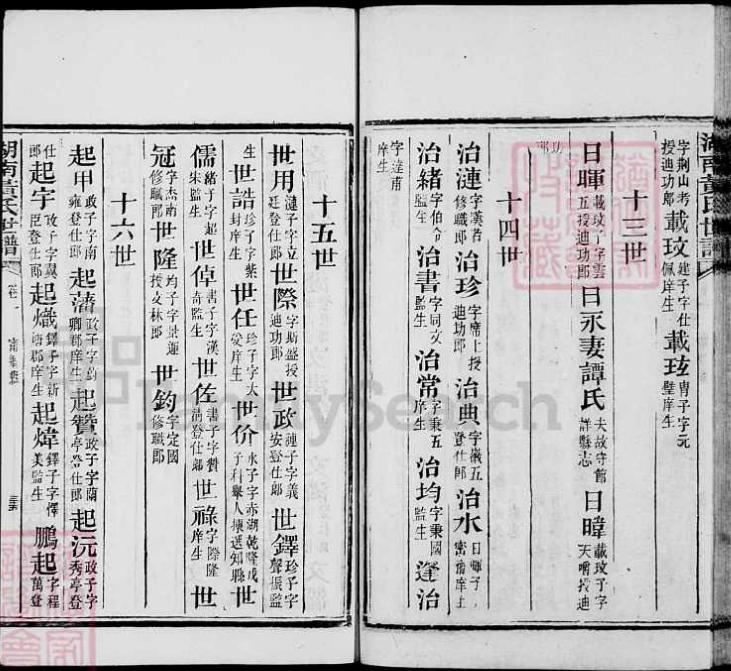 湖南黃氏世譜
字荆山考授迪功郎 載玟 建子字仕佩庠生 載玹 冑子字元璧庠生
十三世
日暉 載玟子字雲五授迪功郎 日永妻譚氏 夫故守節詳縣志 日暐 載玟子字天嚼授迪
功郎
十四世
治漣 字漢若修職郎 治珍 字席上授迪功郎 治典 字徽五登仕郎 治水 日暉子
治緒 字伯令監生 治書 字同文監生 治常 字秉五庠生 治均 字秉國監生 逢治
字達甫庠生
十五世
世用 漣子字立廷登仕郎 世際 字斯盛授迪功郎 世政 漣子字義安登仕郎 世鐸 珍子字聲振監
生 世誥 珍子字紫封庠生 世任 珍子字大受庠生 世价 水子字赤湖乾隆戊子科舉人揀選知縣 世
儒 緒子字超宋監生 世倬 書子字漢奇監生 世佐 書子字贊清登仕郎 世祿 字際隆庠生 世
冠 字杰南修職郎 世隆 均子字景運授文林郎 世鈞 字定國修職郎
十六世
起甲 政子字南雍登仕郎 起藩 政子字卿郡庠生 起贊 政子字蘭亭登仕郎 起沅 政子字秀亭登
仕郎 起宇 政子字翼臣登仕郎 起熾 鐸子字新郡庠生 起煒 鐸子字懌美監生 鵬起 字程萬登
湖南黃氏世譜 卷二